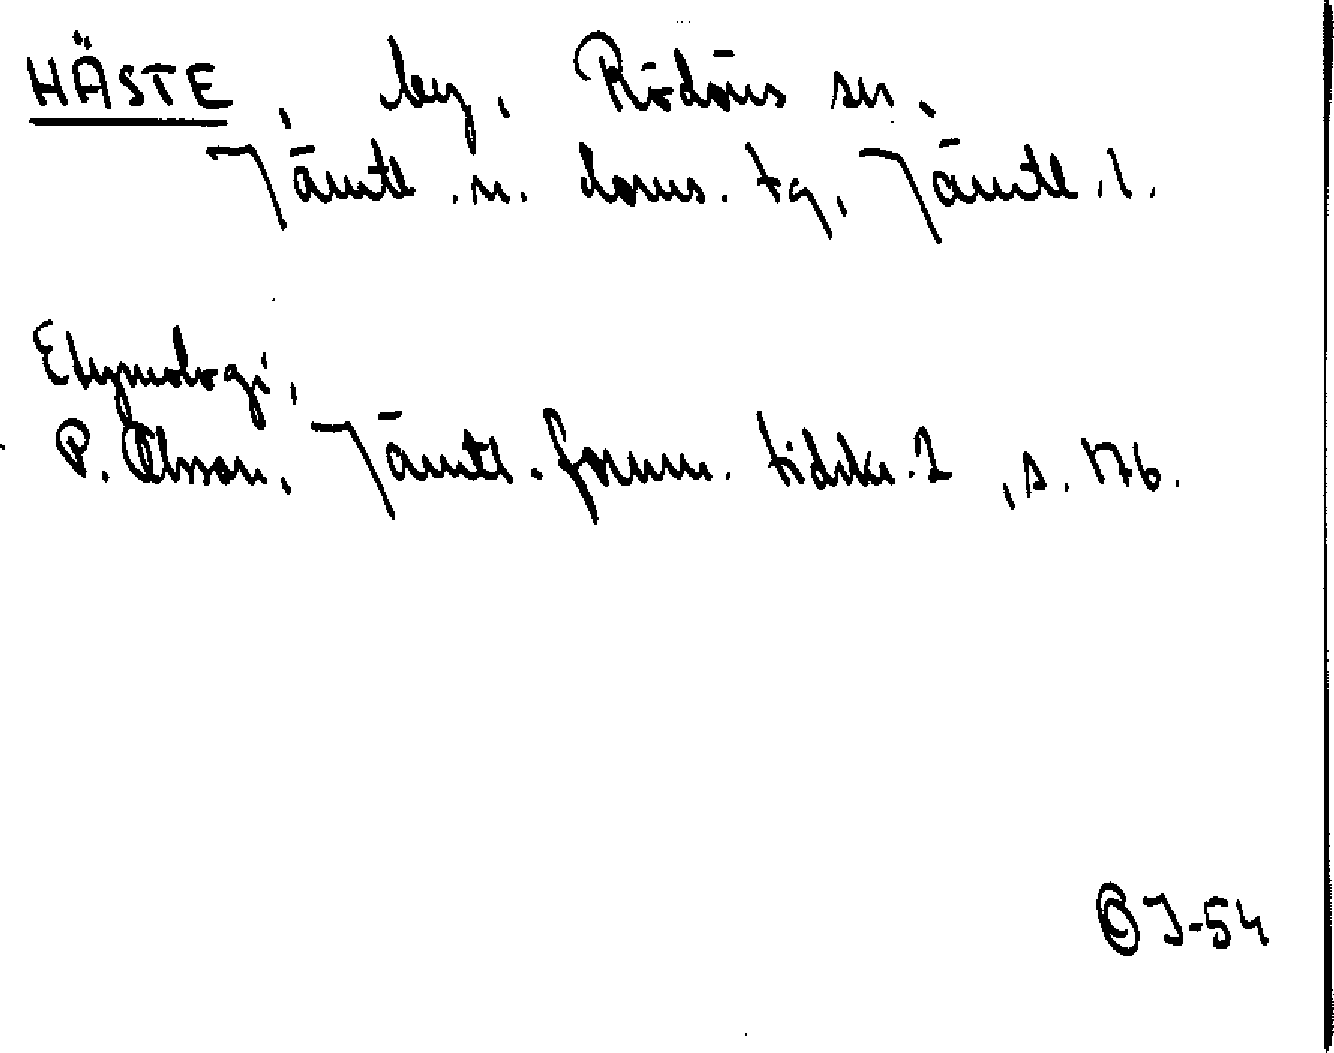 HÄSTE, by, Rödöns sn,
Jämtl. n. doms. tg, Jämtl. l.
Etymologi,
P. Olsson, Jämtl. fornm. tidskr. 2, s. 176.
OJ-54